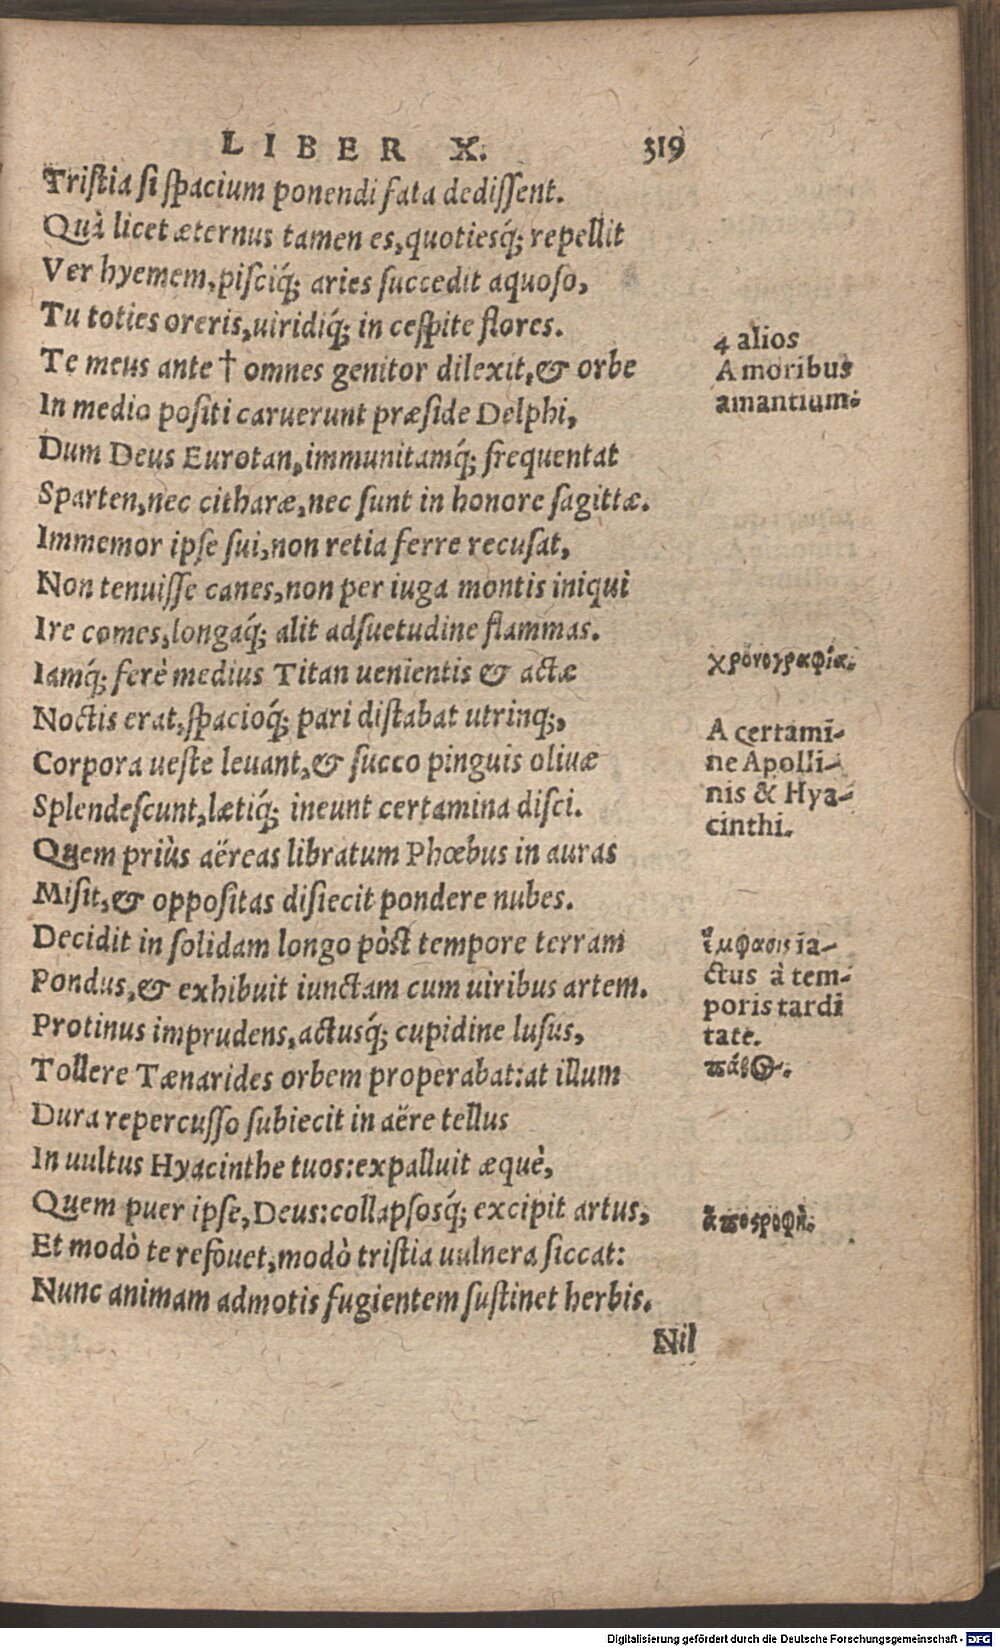 LIBER X. 319
Tristia si spacium ponendi fata dedissent.
Quà licet æternus tamen es, quotiesq́; repellit
Ver hyemem, pisciq́; aries succedit aquoso,
Tu toties oreris, uiridiq́; in cespite flores.
Te meus ante † omnes genitor dilexit, & orbe
In medio positi caruerunt præside Delphi,
Dum Deus Eurotan, immunitamq́; frequentat
Sparten, nec citharæ, nec sunt in honore sagittæ.
Immemor ipse sui, non retia ferre recusat,
Non tenuisse canes, non per iuga montis iniqui
Ire comes, longaq́; alit adsuetudine flammas.
Iamq́; ferè medius Titan uenientis & actæ
Noctis erat, spacioq́; pari distabat utrinq;,
Corpora ueste leuant, & succo pinguis oliuæ
Splendescunt, lætiq́; ineunt certamina disci.
Quem priùs aëreas libratum Phœbus in auras
Misit, & oppositas disiecit pondere nubes.
Decidit in solidam longo pòst tempore terram
Pondus, & exhibuit iunctam cum uiribus artem.
Protinus imprudens, actusq́; cupidine lusus,
Tollere Tænarides orbem properabat: at illum
Dura repercusso subiecit in aëre tellus
In uultus Hyacinthe tuos: expalluit æquè,
Quem puer ipse, Deus: collapsosq́; excipit artus,
Et modò te refouet, modò tristia uulnera siccat:
Nunc animam admotis fugientem sustinet herbis.
Nil
4 alios
A moribus
amantium.
χρονογραφία.
A certami-
ne Apolli-
nis & Hya-
cinthi.
ἔμφασις ia-
ctus à tem-
poris tardi
tate.
πάθος.
ἀποστροφὴ.
Digitalisierung gefördert durch die Deutsche Forschungsgemeinschaft - DFG